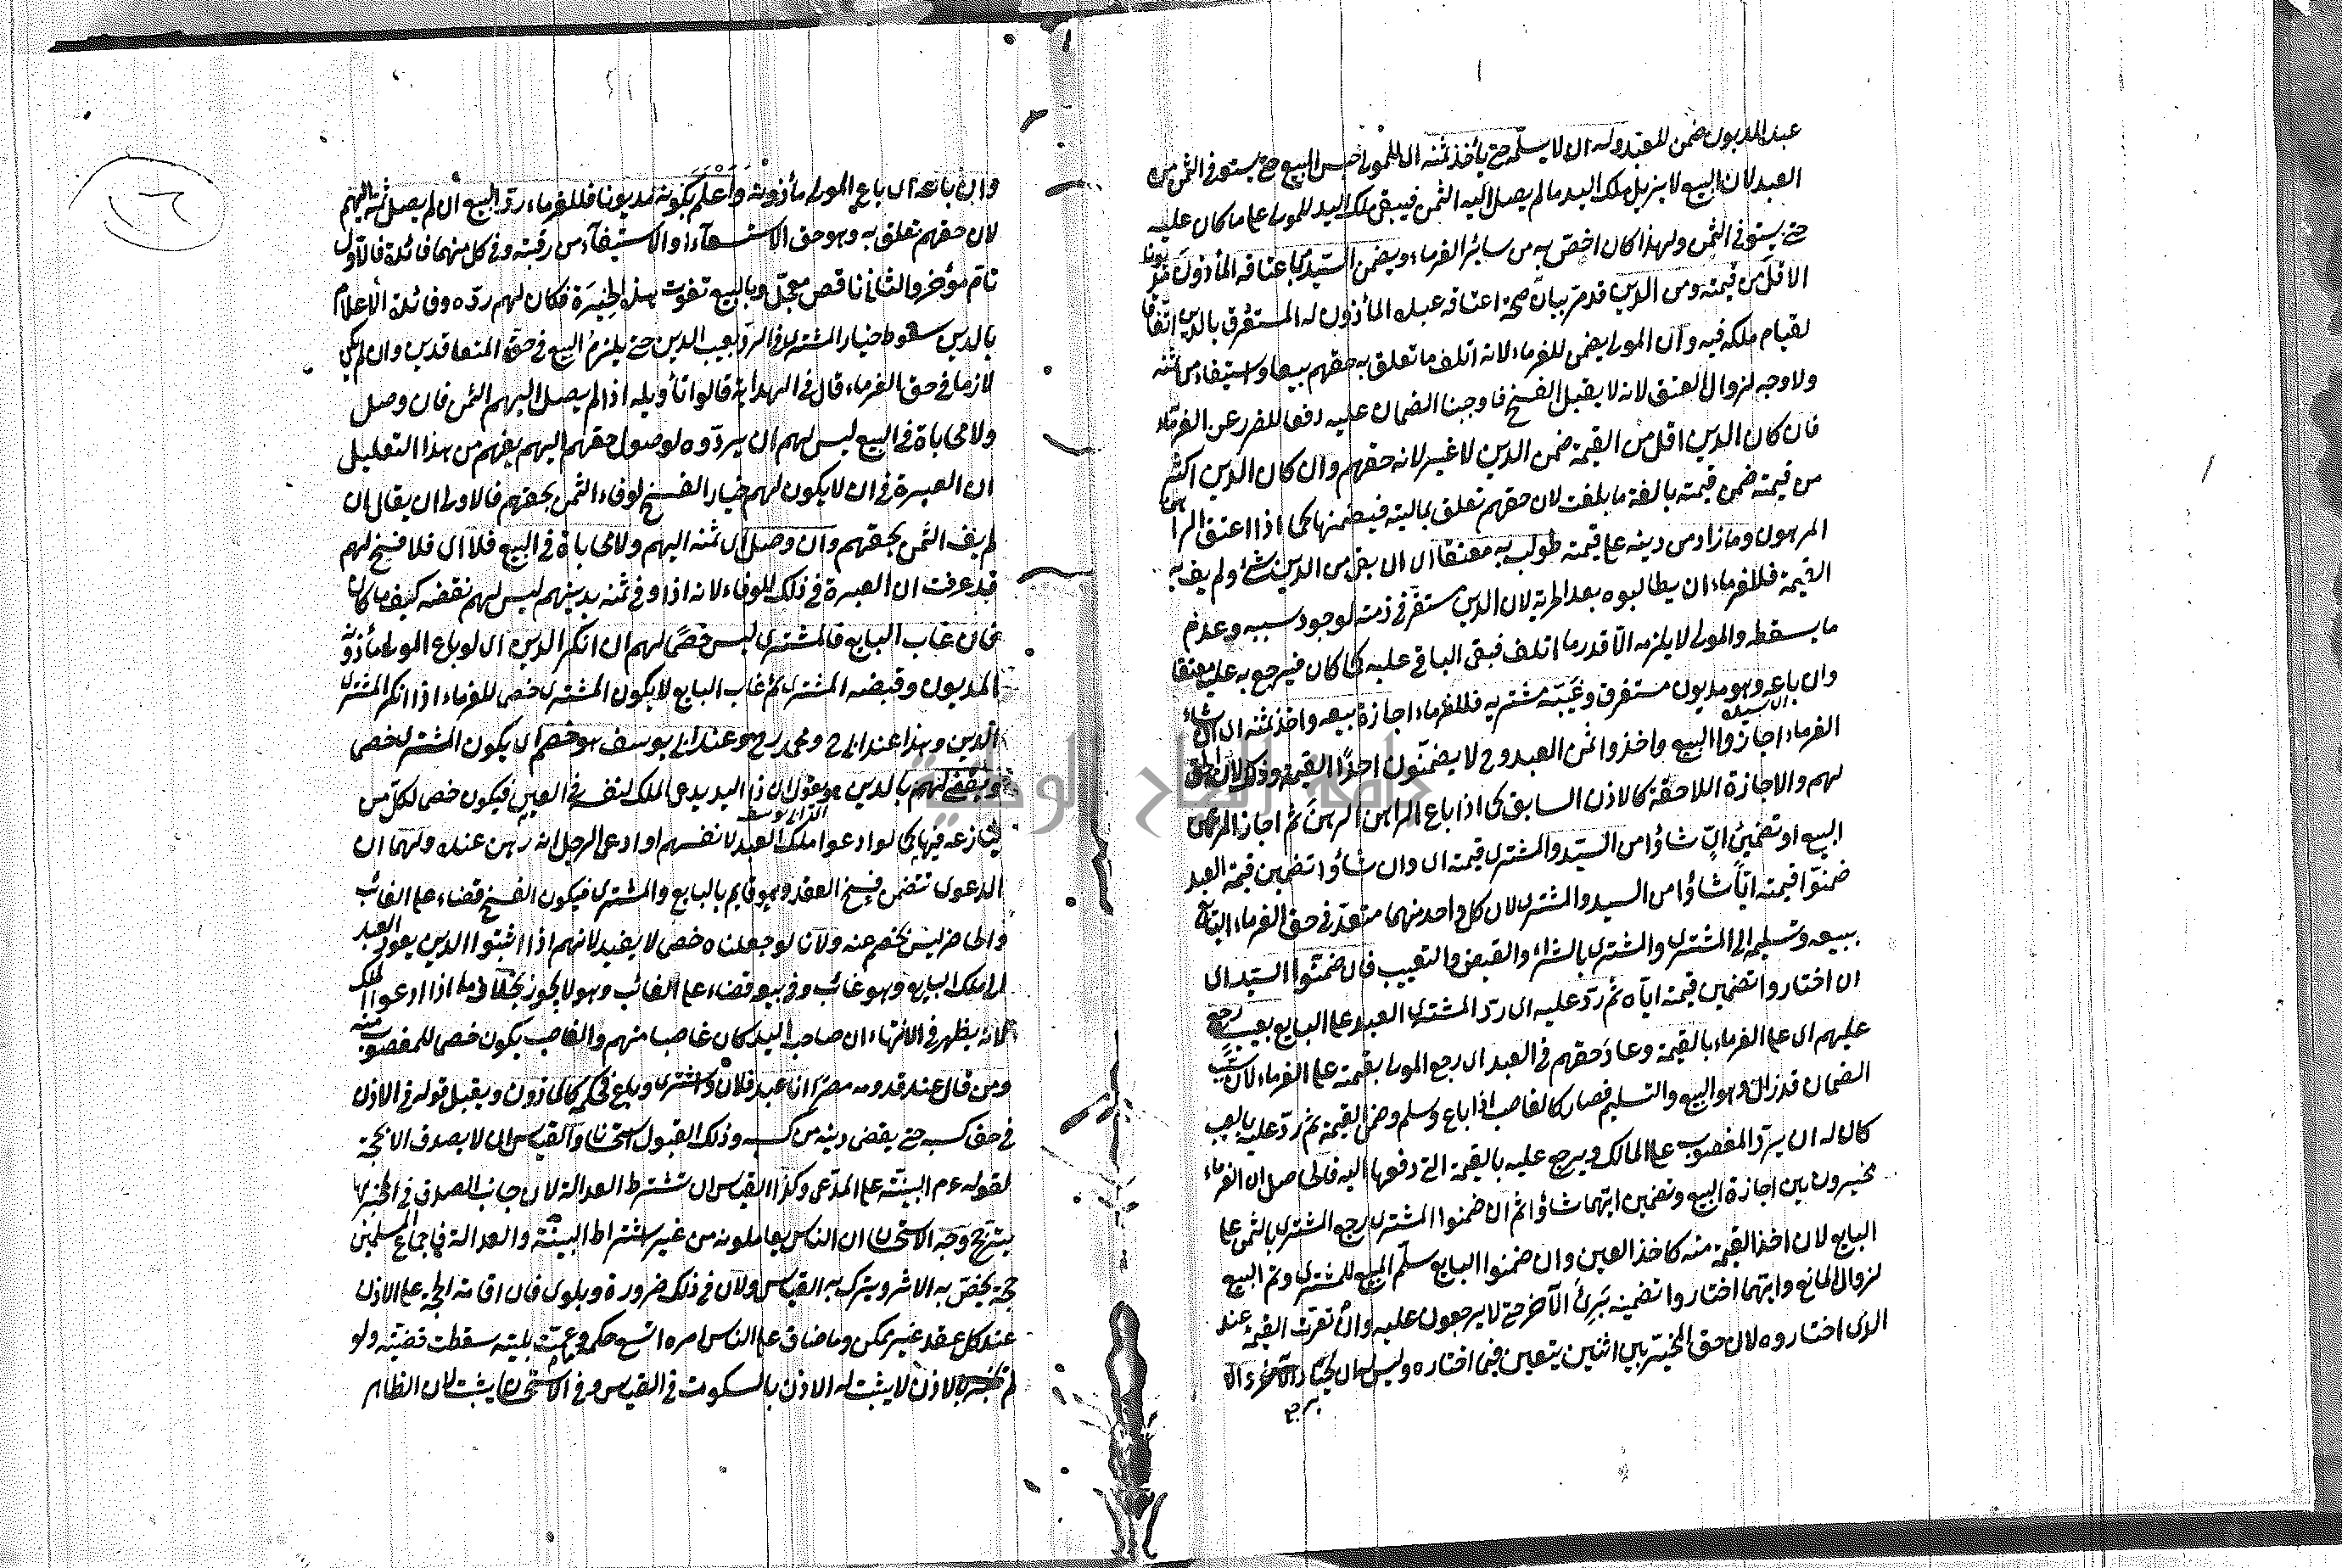 عبد المديون ضمن للمقبد وله ان لا يسلمه حتى يأخذ ثمنه اى للمولى حبس المبيع حتى يستوفى الثمن من
العبد لان البيع لا يزيل ملك اليد ما لم يصل اليه الثمن فيبقى ملك اليد للمولى على ما كان عليه
حتى يستوفى الثمن ولهذا كان اخص به من سائر الغرماء ويضمن السيد باعتاقه المأذون مديونا
الاقل من قيمته ومن الدين قد مر بيان صحة اعتاقه عبده المأذون له المستغرق بالدين اتفاقا
لقيام ملكه فيه وان المولى يضمن للغرماء لانه اتلف ما تعلق به حقهم بيعا واستيفاء من ثمنه
ولا وجه لزوال العتق لانه لا يقبل الفسخ فاوجبنا الضمان عليه دفعا للضرر عن الغرماء
فان كان الدين اقل من القيمة ضمن الدين لا غير لانه حقهم وان كان الدين اكثر
من قيمته ضمن قيمته بالغة ما بلغت لان حقهم تعلق بماليته فيضمنها كما اذا اعتق الراهن
المرهون وما زاد من دينه على قيمته طولب به معتقا اى ان بقى من الدين شئ ولم يف به
القيمة فللغرماء ان يطالبوه بعد الحرية لان الدين مستقر فى ذمته لوجود سببه وعدم
ما يسقطه والمولى لا يلزمه الا قدر ما اتلف فبقى الباقى عليه كما كان فيرجع به عليه معتقا
وان باعه وهو مديون مستغرق وغيبه مشتريه فللغرماء اجازة بيعه واخذ ثمنه اى ان شاء
اى سيده
الغرماء اجازوا البيع واخذوا ثمن العبد وح لا يضمنون احدا القيمة وذلك لان الحق
لهم والاجازة اللاحقة كالاذن السابق كما اذا باع الراهن الرهن ثم اجاز المرتهن
البيع او تضمين اى شاؤا من السيد والمشترى قيمته اى وان شاؤا تضمين قيمة العبد
ضمنوا قيمته ايا شاؤا من السيد والمشترى لان كل واحد منهما متعد فى حق الغرماء البايع
ببيعه وتسليمه الى المشترى والمشترى بالشراء والقبض والتغييب فان ضمنوا السيد اى
ان اختاروا تضمين قيمته اياه ثم رد عليه اى رد المشترى العبد على البايع بعيب رجع
عليهم اى على الغرماء بالقيمة وعاد حقهم فى العبد اى رجع المولى بقيمته على الغرماء لان سبب
الضمان قد زال وهو البيع والتسليم فصار كالغاصب اذا باع وسلم وضمن القيمة ثم رد عليه بالعيب
كان له ان يرد المغصوب على المالك ويرجع عليه بالقيمة التى دفعها اليه فالحاصل ان الغرماء
مخيرون بين اجازة البيع وتضمين ايهما شاؤا ثم ان ضمنوا المشترى رجع المشترى بالثمن على
البايع لان اخذ القيمة منه كاخذ العين وان ضمنوا البايع سلم المبيع للمشترى وتم البيع
لزوال المانع وايهما اختاروا تضمينه برئ الآخر حتى لا يرجعون عليه وان تقررت القيمة عند
الذى اختاروه لان حق المخير بين اثنين يتعين فيما اختاره وليس له ان يختار الآخر
وان باعه اى باع المولى مأذونه واعلم بكونه مديونا فللغرماء رد البيع ان لم يصل ثمنه اليهم
لان حقهم تعلق به وهو حق الاستسعاء او الاستيفاء من رقبته وفى كل منهما فائدة فالاول
تام مؤخر والثانى ناقص معجل وبالبيع تفوت هذه الخيرة فكان لهم رده وفائدة الاعلام
بالدين سقوط خيار المشترى فى الرد بعيب الدين حتى يلزم البيع فى حق المتعاقدين وان لم يكن
لازما فى حق الغرماء قال فى الهداية قالوا تأويله اذا لم يصل اليهم الثمن فان وصل
ولا محاباة فى البيع ليس لهم ان يردوه لوصول حقهم اليهم يفهم من هذا التعليل
ان العبرة فى ان لا يكون لهم خيار الفسخ لوفاء الثمن بحقهم فالاولى ان يقال ان
لم يف الثمن بحقهم وان وصل اى ثمنه اليهم ولا محاباة فى البيع فلا اى فلا فسخ لهم
قد عرفت ان العبرة فى ذلك للوفاء لانه اذا وفى ثمنه بدينهم ليس لهم نقضه كيف ما كان
فان غاب البايع فالمشترى ليس خصما لهم ان انكر الدين اى لو باع المولى مأذونه
المديون وقبضه المشترى ثم غاب البايع لا يكون المشترى خصما للغرماء اذا انكر المشترى
الدين وهذا عند ابى ح ومحمد رح وعند ابى يوسف هو خصم اى يكون المشترى خصما
ويقضى لهم بالدين هو يقول ان ذا اليد يدعى الملك لنفسه فى العين فيكون خصما لكل من
اى ابى يوسف
ينازعه فيها كما لو ادعوا ملك العبد لانفسهم او ادعى الرجل انه رهن عنده ولهما ان
الدعوى تتضمن فسخ العقد وهو قايم بالبايع والمشترى فيكون الفسخ قضاء على الغائب
والحاضر ليس بخصم عنه ولان لو جعلناه خصما لا يفيد لانهم اذا اثبتوا الدين يعود العبد
الى ملك البايع وهو غائب وفى بيعه قضاء على الغائب وهو لا يجوز بخلاف ما اذا ادعوا الملك
لانه يظهر فى الانتهاء ان صاحب اليد كان غاصبا منهم والغاصب يكون خصما للمغصوب منه
ومن قال عند قدومه مصرا انا عبد فلان واشترى وباع فحكمه كالمأذون ويقبل قوله فى الاذن
فى حق كسبه حتى يقضى دينه من كسبه وذلك القبول استحسانا والقياس ان لا يصدق الا بحجة
لقوله عم البينة على المدعى وكذا القياس ان تشترط العدالة لان جانب الصدق فى الخبر بها
يترجح وجه الاستحسان ان الناس يعاملونه من غير اشتراط البينة والعدالة فيه واجماع المسلمين
حجة يخص به الاثر ويترك به القياس ولان فى ذلك ضرورة وبلوى فان اقامة الحجة على الاذن
عند كل عقد غير ممكن وما ضاق على الناس امره اتسع حكمه وعمت بليته سقطت قضيته ولو
لم يخبر بالاذن لا يثبت له الاذن بالسكوت فى القياس وفى الاستحسان يثبت لان الظاهر